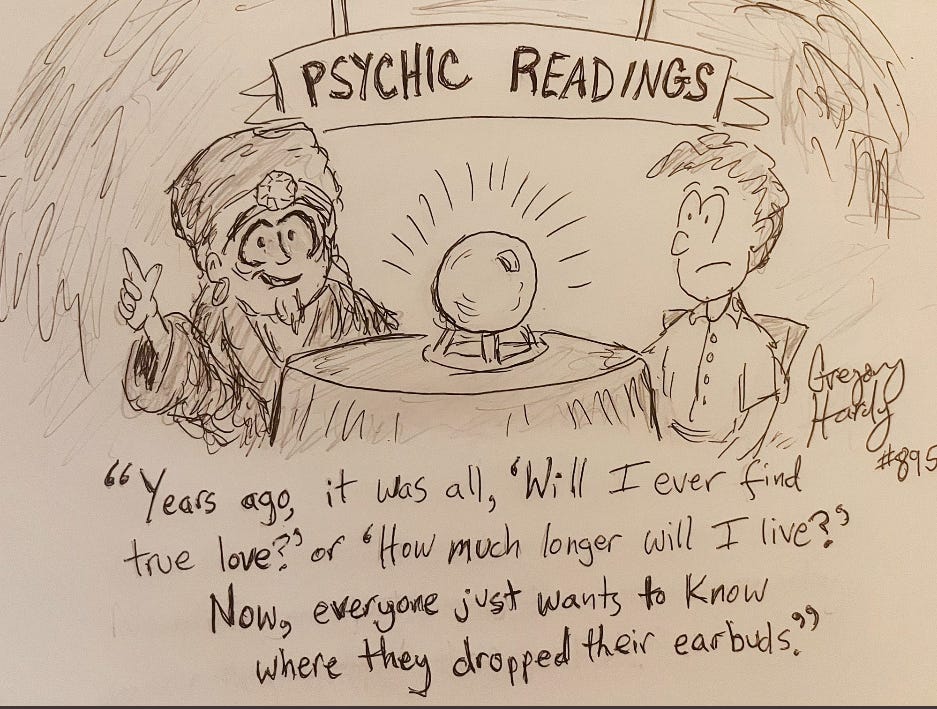 PSYCHIC READINGS
Gregory
Hardy
#895
“Years ago, it was all, ‘Will I ever find
true love?’ or ‘How much longer will I live?’
Now, everyone just wants to know
where they dropped their earbuds.”